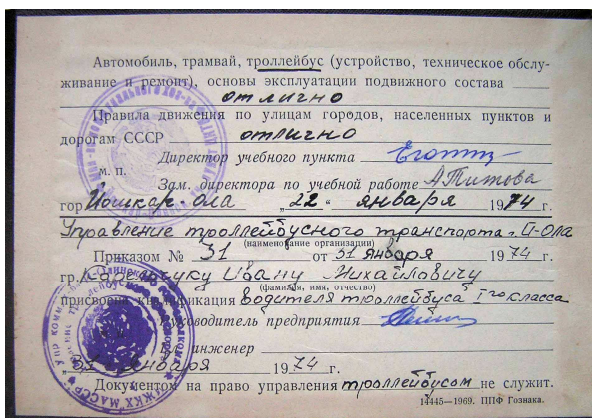 Автомобиль, трамвай, троллейбус (устройство, техническое обслу-
живание и ремонт), основы эксплуатации подвижного состава
отлично
Правила движения по улицам городов, населенных пунктов и
дорогам СССР отлично
Директор учебного пункта
м. п.
Зам. директора по учебной работе А Титова
гор Йошкар-Ола „22“ января 1974 г.
Управление троллейбусного транспорта г. Й-Ола
(наименование организации)
Приказом № 31 от 31 января 1974 г.
гр. Ивану Михайловичу
(фамилия, имя, отчество)
присвоена квалификация водителя троллейбуса I го класса
Руководитель предприятия
инженер
января 1974 г.
Документом на право управления троллейбусом не служит.
14445—1969. ППФ Гознака.
МЖКХ МАССР